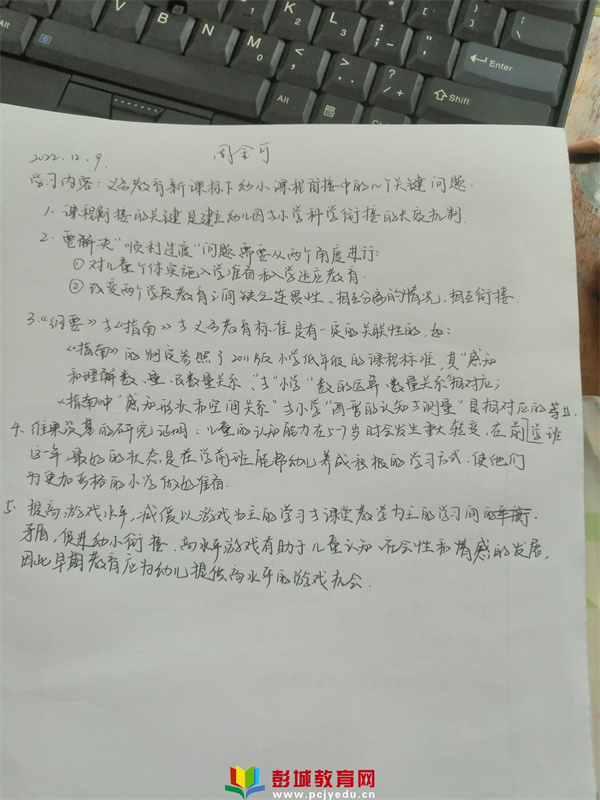 V B N M
K L : ;
" '
< ,
> .
? /
Alt
Alt
Ctrl
Enter
Shift
2022.12.9.
周金可
学习内容：义务教育新课标下幼小课程衔接中的几个关键问题.
1. 课程衔接的关键是建立幼儿园与小学科学衔接的长效机制.
2. 要解决"顺利过渡"问题需要从两个角度进行：
①对儿童个体实施入学准备和入学适应教育.
②改变两个学段教育之间缺乏连贯性、相互分离的情况，相互衔接.
3.《纲要》与《指南》与义务教育标准是有一定的关联性的，如：
《指南》的制定参照了2011版小学低年级的课程标准，其"感知
和理解数、量及数量关系"与"小学"数的运算、数量关系"相对应；
《指南》中"感知形状和空间关系"与小学"图形的认知与测量"是相对应的等.
4. 维果茨基的研究证明：儿童的认知能力在5-7岁时会发生重大转变，在学前班
这一年，最好的状态是在学前班能帮幼儿养成积极的学习方式，使他们
为更加严格的小学做好准备.
5. 提高游戏水平，减缓以游戏为主的学习与课堂教学为主的学习间的
矛盾，促进幼小衔接. 高水平游戏有助于儿童认知、社会性和情感的发展，
因此早期教育应为幼儿提供高水平的游戏机会.
彭城教育网
www.pcjyedu.cn